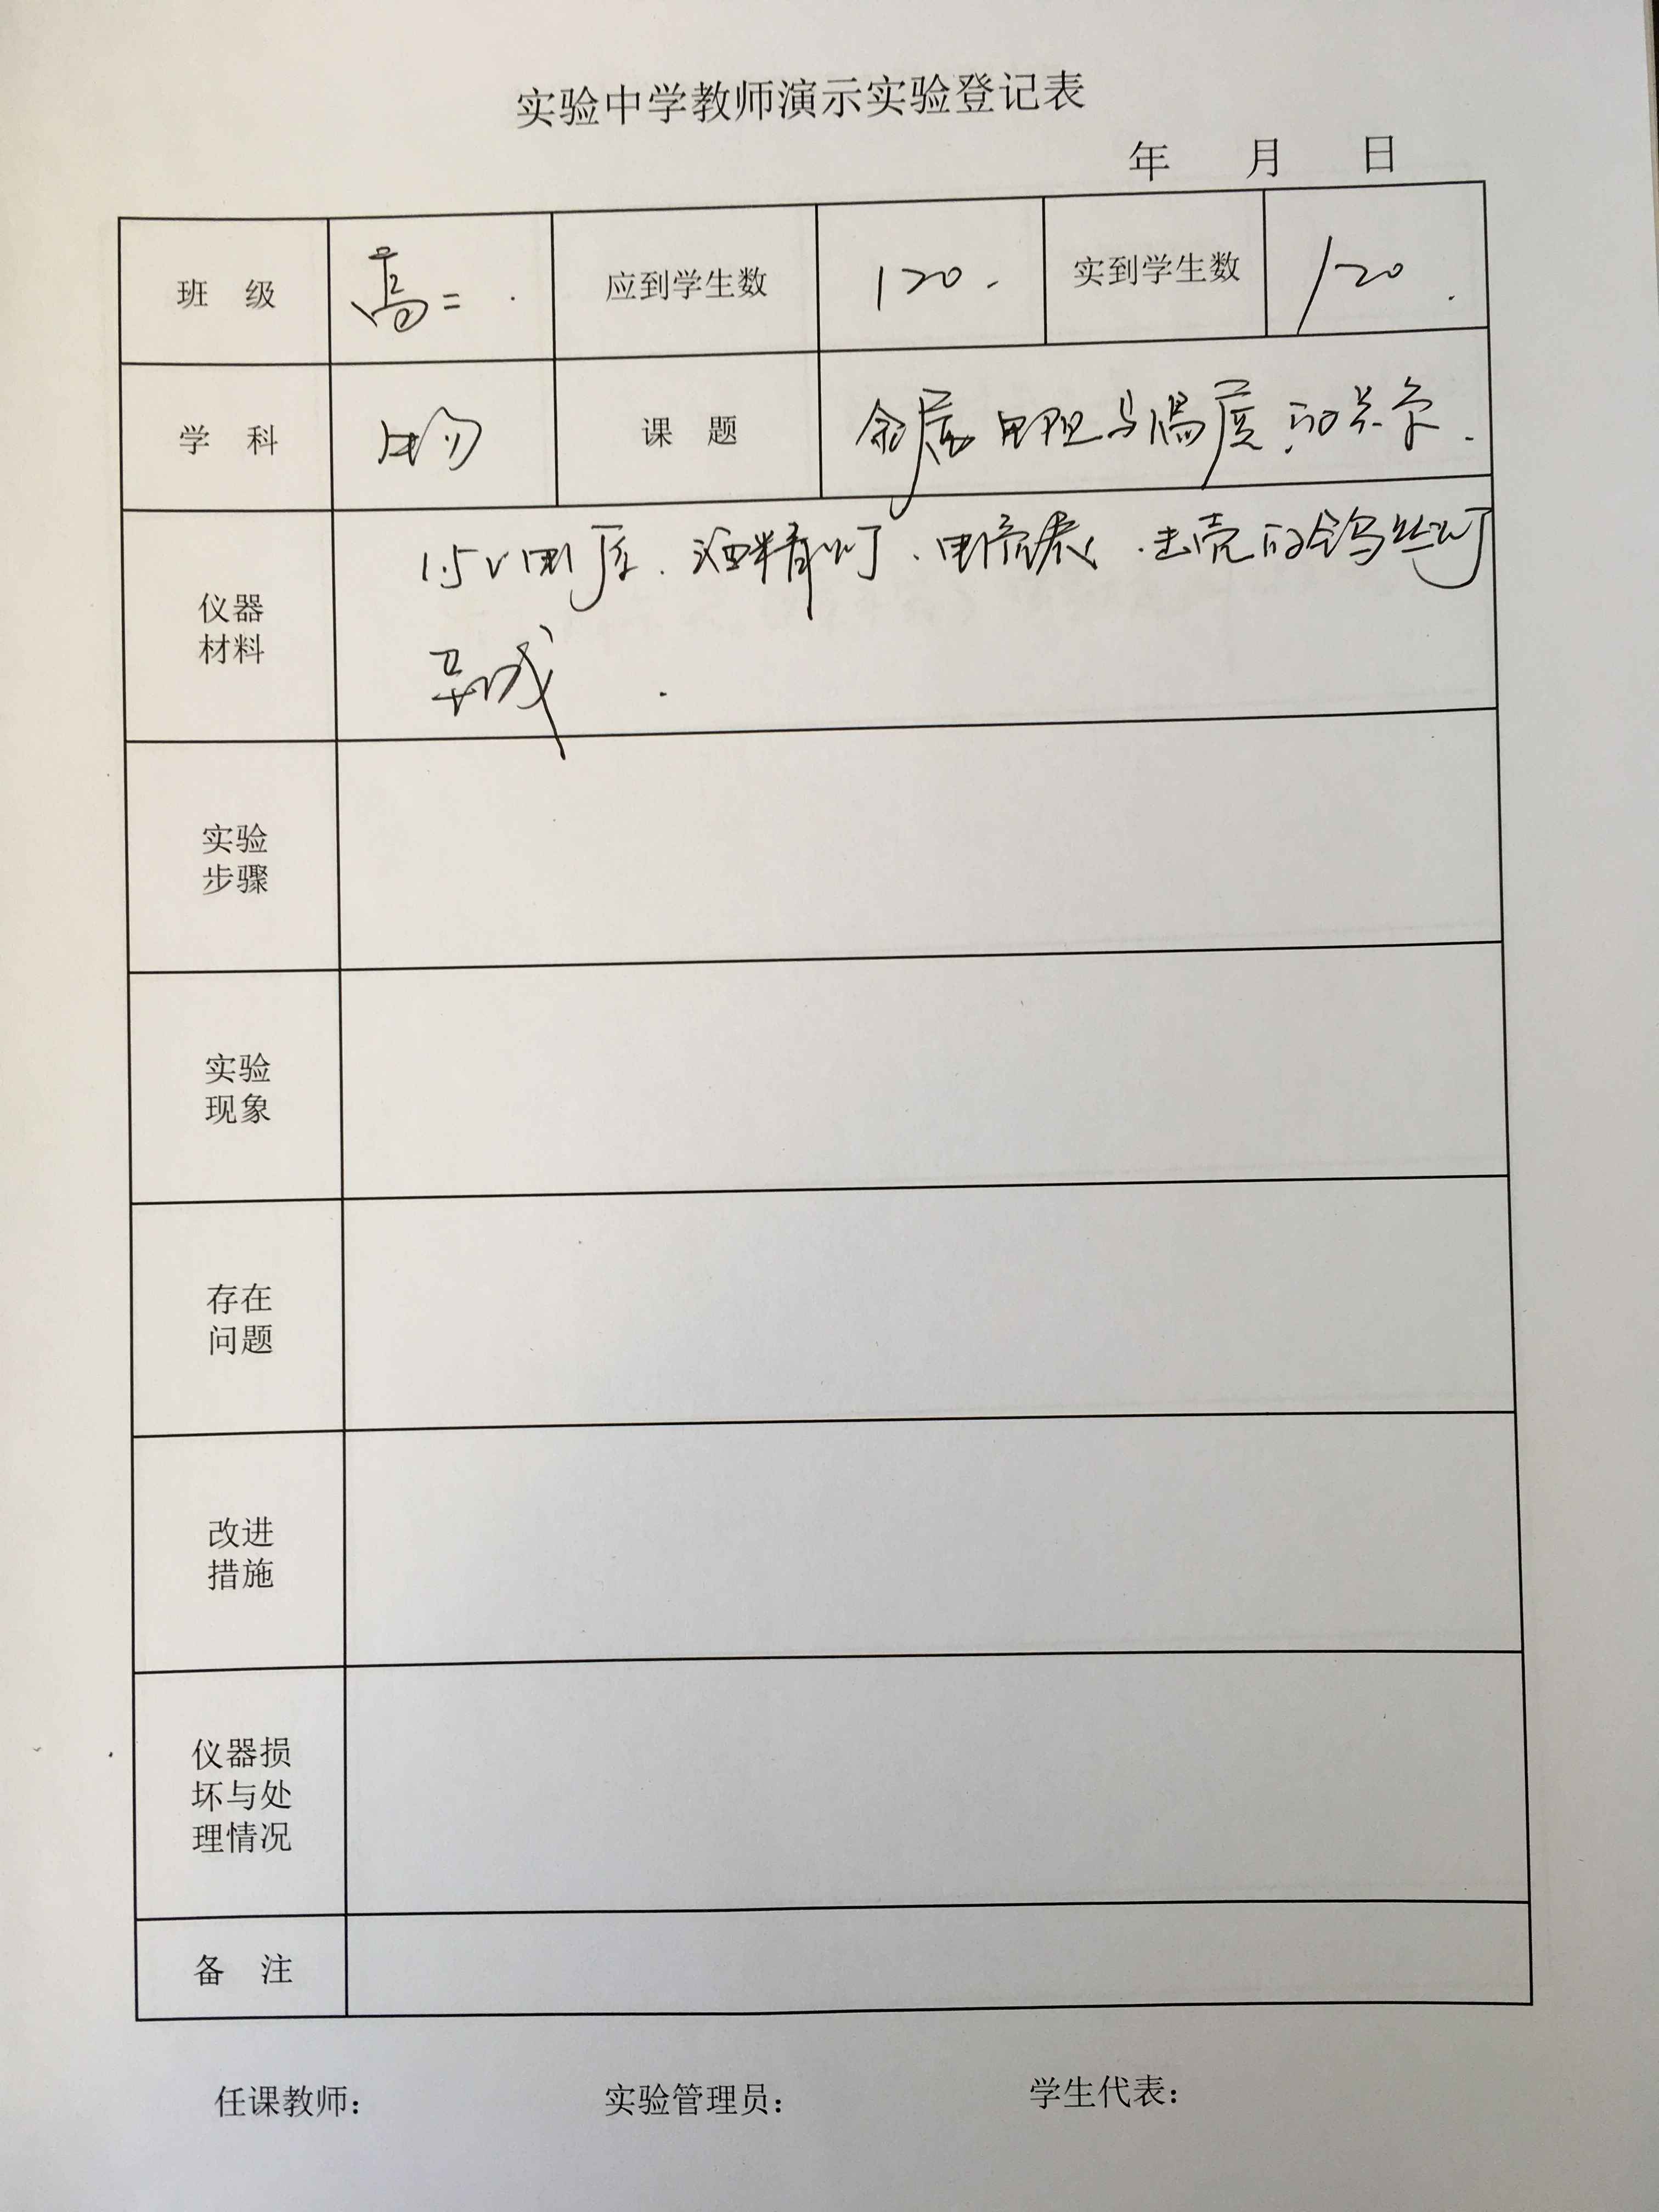 实验中学教师演示实验登记表
年 月 日
班 级 高二. 应到学生数 120. 实到学生数 120.
学 科 物 课 题 金属电阻与温度的关系.
仪器
材料
1.5V电压.酒精灯.电流表.去壳的钨丝灯
导线.
实验
步骤
实验
现象
存在
问题
改进
措施
仪器损
坏与处
理情况
备 注
任课教师: 实验管理员: 学生代表: